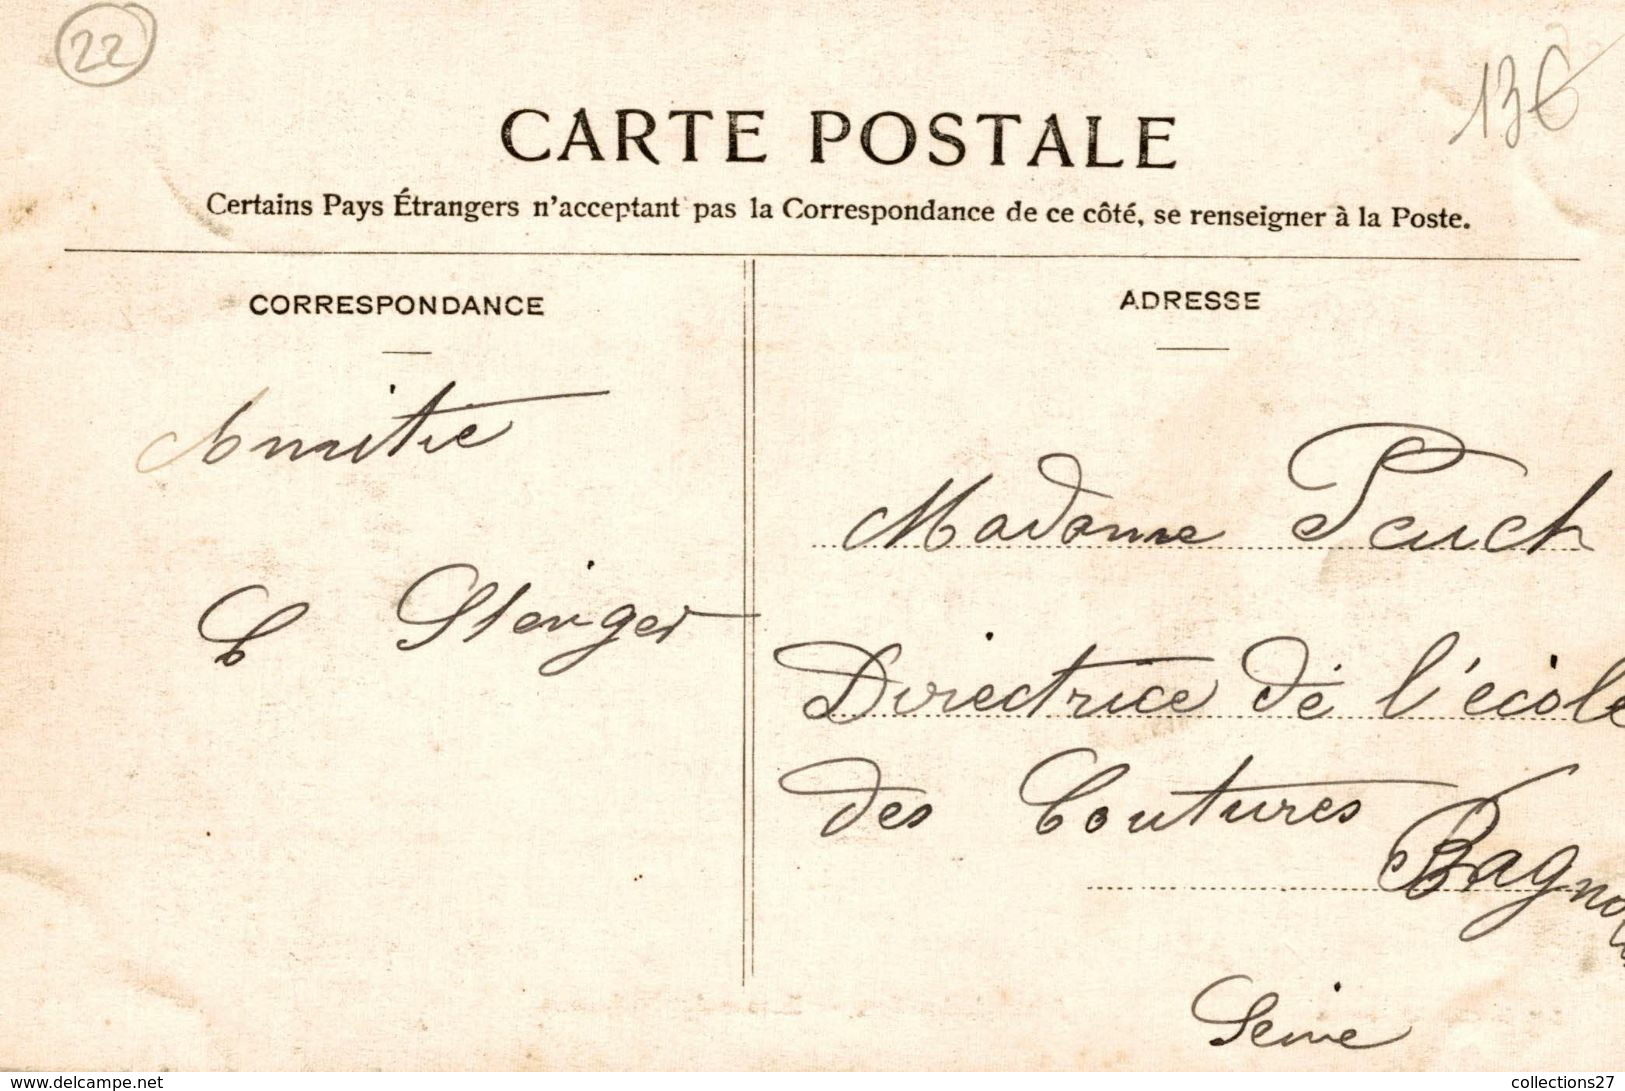 22
13€
CARTE POSTALE
Certains Pays Étrangers n'acceptant pas la Correspondance de ce côté, se renseigner à la Poste.
CORRESPONDANCE
ADRESSE
Amitié
Madame Peuch
Directrice de l'école
des Coutures
Bagno
Seine
www.delcampe.net
collections27